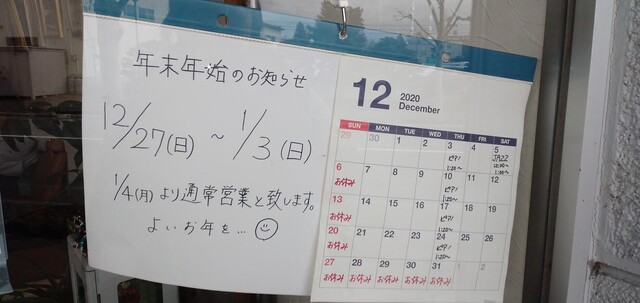 年末年始のお知らせ
12/27(日) ~ 1/3(日)
1/4(月)より通常営業と致します。
よいお年を…
12 2020 December
SUN MON TUE WED THU FRI SAT
29 30 1 2 3 4 5
ピアノ 1:20~ JAZZ
6 7 8 9 10 11 12
お休み ピアノ 1:20~
13 14 15 16 17 18 19
お休み
20 21 22 23 24 25 26
お休み ピアノ 1:20~
27 28 29 30 31 1 2
お休み お休み お休み お休み お休み